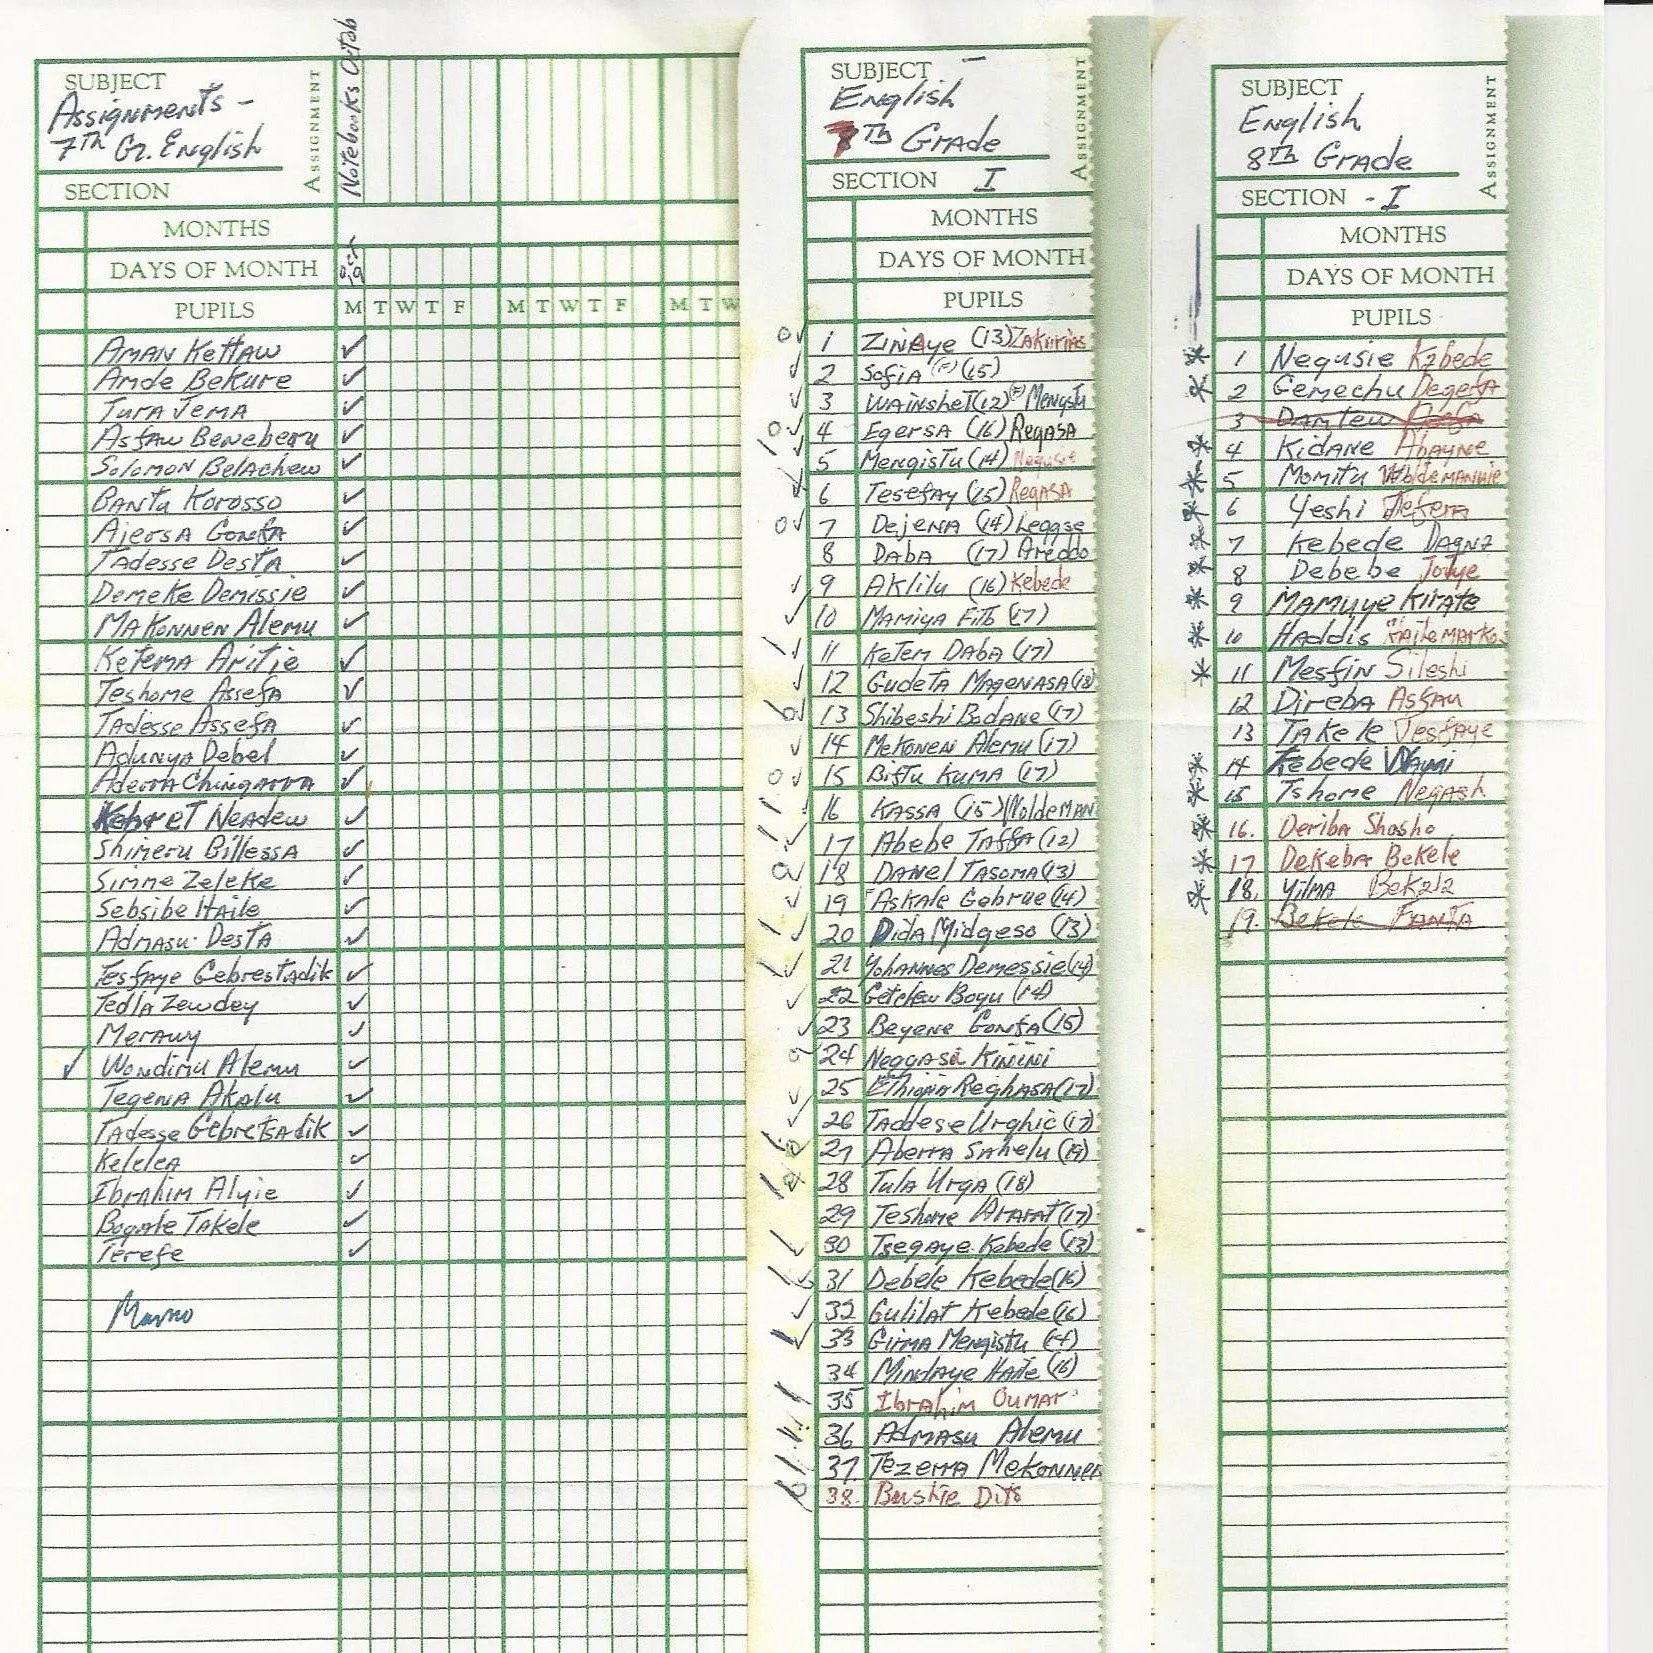 SUBJECT
Assignments -
7th Gr. English
ASSIGNMENT
Notebooks Octob
SECTION
MONTHS
DAYS OF MONTH
Oct 19
PUPILS M T W T F M T W T F M T W
Aman Kettaw
Amde Bekure
Tura Jema
Asfaw Beneberu
Solomon Belachew
Bantu Korosso
Ajersa Gonfa
Tadesse Desta
Demeke Demissie
Makonnen Alemu
Ketema Aritie
Teshome Assefa
Tadesse Assefa
Adunya Debel
Aderra Chingarra
Kebret Neadew
Shimeru Billessa
Simne Zeleke
Sebsibe Haile
Admasu Desta
Tesfaye Gebrestadik
Tedla Zewdey
Merawy
Wondimu Alemu
Tegena Akalu
Tadesse Gebretsadik
Kelelea
Ibrahim Alyie
Bogale Takele
Terefe
SUBJECT
English
th Grade
ASSIGNMENT
SECTION I
MONTHS
DAYS OF MONTH
PUPILS
1 Zinaye (13) Zakirias
2 Sofia (F) (15)
3 Wainshet (12) (F) Mengstu
4 Egersa (16) Regasa
5 Mengistu (14) Negusie
6 Tesefay (15) Regasa
7 Dejena (14) Leggse
8 Daba (17) Areddo
9 Aklilu (16) Kebede
10 Mamiya (17)
11 Ketem Daba (17)
12 Gudeta Magenasa (18)
13 Shibeshi Badane (17)
14 Mekonen Alemu (17)
15 Biftu Kuma (17)
16 Kassa (15) Woldeman
17 Abebe Taffa (12)
18 Danel Tasoma (13)
19 Askale Gebrue (14)
20 Dida Midgeso (13)
21 Yohannes Demessie (14)
22 Getchew Bogu (14)
23 Beyene Gonfa (15)
24 Neggasi Kinini
25 Ethiopia Reghasa (17)
26 Taddese Urghic (17)
27 Aberra Sahelu (19)
28 Tula Urga (18)
29 Teshome Ararat (17)
30 Tsegaye Kebede (13)
31 Debele Kebede (16)
32 Gulilat Kebede (16)
33 Girma Mengistu (14)
34 Mindaye Haile (16)
35 Ibrahim Oumar
36 Admasu Alemu
37. Tezerra Mekonnen
38. Bushie
SUBJECT
English
8th Grade
ASSIGNMENT
SECTION - I
MONTHS
DAYS OF MONTH
PUPILS
1 Negusie Kebede
2 Gemechu Degefa
3 Damtew
4 Kidane Abayne
5 Momitu Woldemannie
6 Yeshi Tefera
7 Kebede Dagne
8 Debebe
9 Mamuye Kirate
10 Haddis Hailemarkos
11 Mesfin Sileshi
12 Direba Asfau
13 Takele Tesfaye
14 Kebede Wayni
15 Tshome Negash
16. Deriba Shasho
17 Dekeba Bekele
18. Yilma Bekele
19. Bekele Fanta